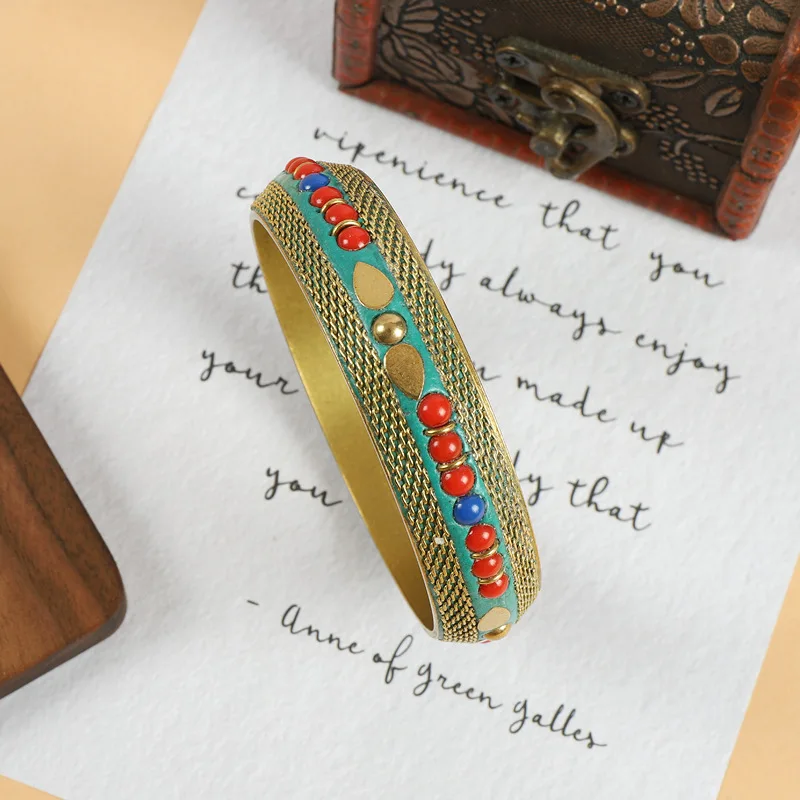 vipenience that you
dy always enjoy
th
your made up
you ly that
- Anne of green galles